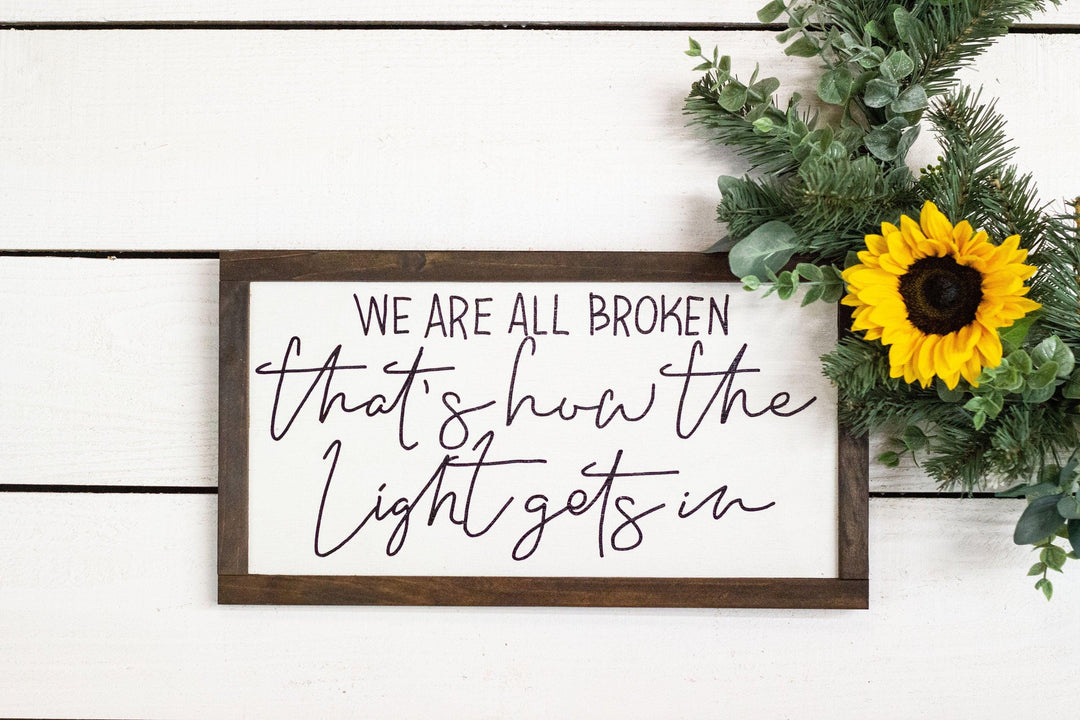 WE ARE ALL BROKEN
that's how the
Light gets in